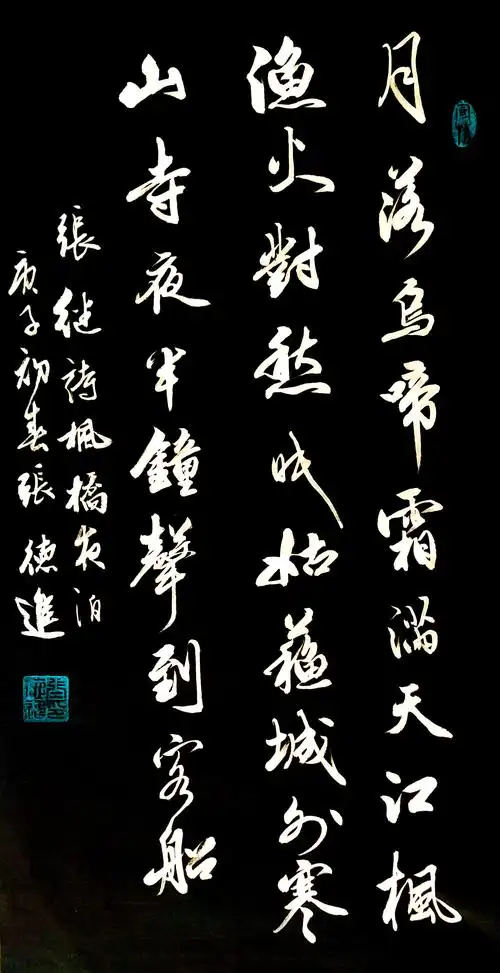 月落烏啼霜滿天江楓
漁火對愁眠姑蘇城外寒
山寺夜半鐘聲到客船
張继詩楓橋夜泊
庚子初春張德進